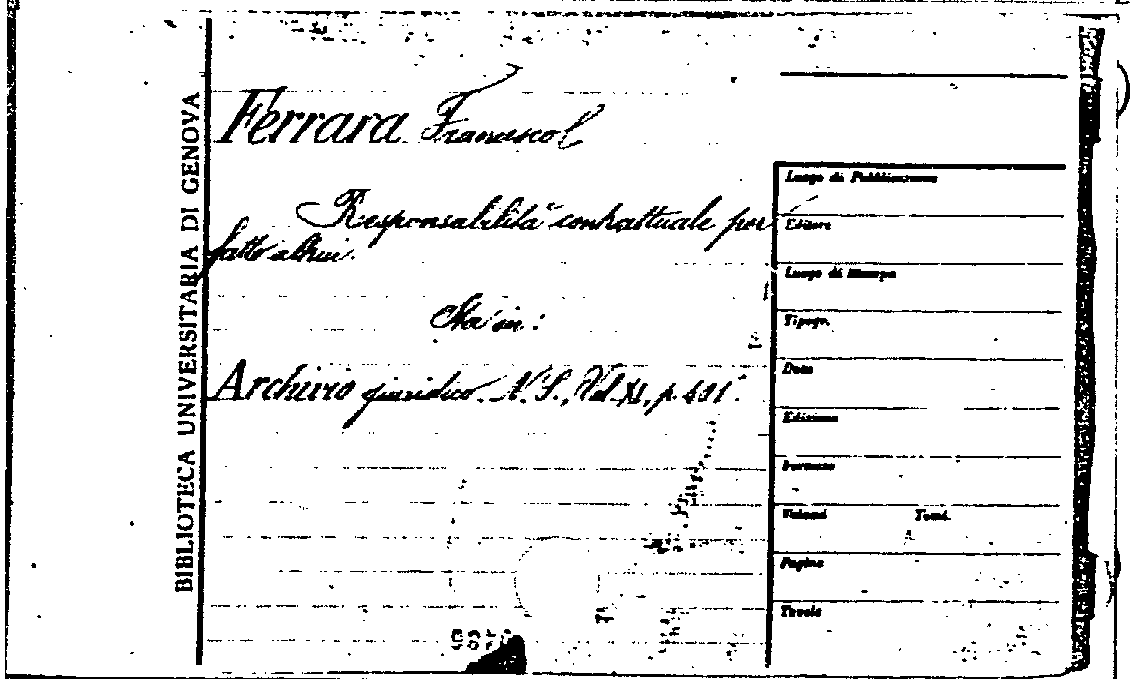 BIBLIOTECA UNIVERSITARIA DI GENOVA
Ferrara Francesco
Responsabilità contrattuale per
fatto altrui.
Sta in:
Archivio giuridico. N. S., Vol. XI, p. 401.
Luogo di Pubblicazione
Editore
Luogo di Stampa
Tipogr.
Data
Edizione
Formato
Volumi Tomi
Pagine
Tavole